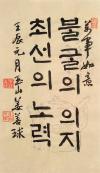 萬事如意
불굴의 의지
최선의 노력
壬辰元月 玉山 姜善球